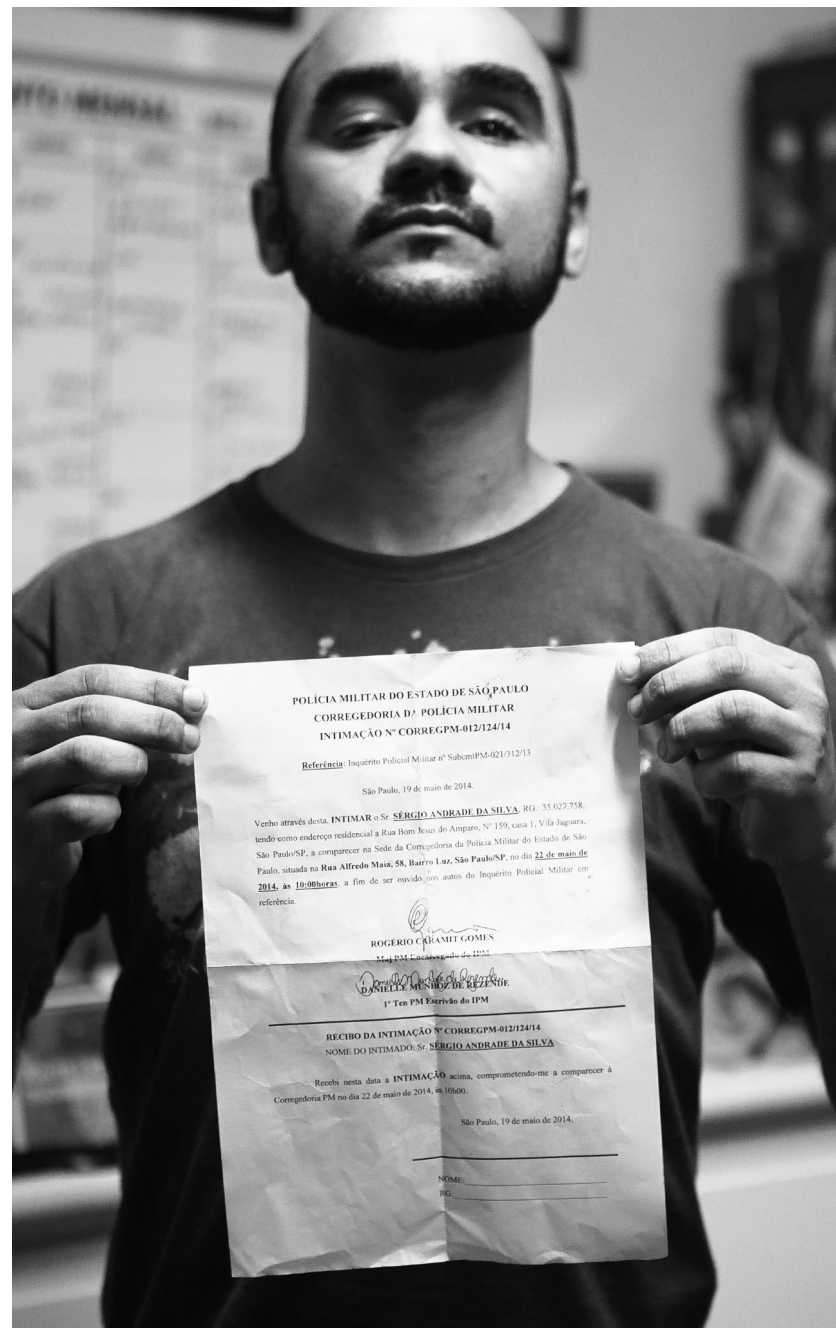 POLÍCIA MILITAR DO ESTADO DE SÃO PAULO
CORREGEDORIA DA POLÍCIA MILITAR
INTIMAÇÃO Nº CORREGPM-012/124/14
Referência: Inquérito Policial Militar nº SubcmtPM-021/312/13.
São Paulo, 19 de maio de 2014.
Venho através desta, INTIMAR o Sr. SÉRGIO ANDRADE DA SILVA, RG.: 35.027.758,
tendo como endereço residencial a Rua Bom Jesus do Amparo, Nº 159, casa 1, Vila Jaguara,
São Paulo/SP, a comparecer na Sede da Corregedoria da Polícia Militar do Estado de São
Paulo, situada na Rua Alfredo Maia, 58, Bairro Luz, São Paulo/SP, no dia 22 de maio de
2014, às 10:00horas, a fim de ser ouvido nos autos do Inquérito Policial Militar em
referência.
ROGÉRIO CARAMIT GOMES
Maj PM Encarregado do IPM
DANIELLE MUNHOZ DE REZENDE
1º Ten PM Escrivão do IPM
RECIBO DA INTIMAÇÃO Nº CORREGPM-012/124/14
NOME DO INTIMADO: Sr. SÉRGIO ANDRADE DA SILVA
Recebi nesta data a INTIMAÇÃO acima, comprometendo-me a comparecer à
Corregedoria PM no dia 22 de maio de 2014, às 10h00.
São Paulo, 19 de maio de 2014.
NOME:
RG: